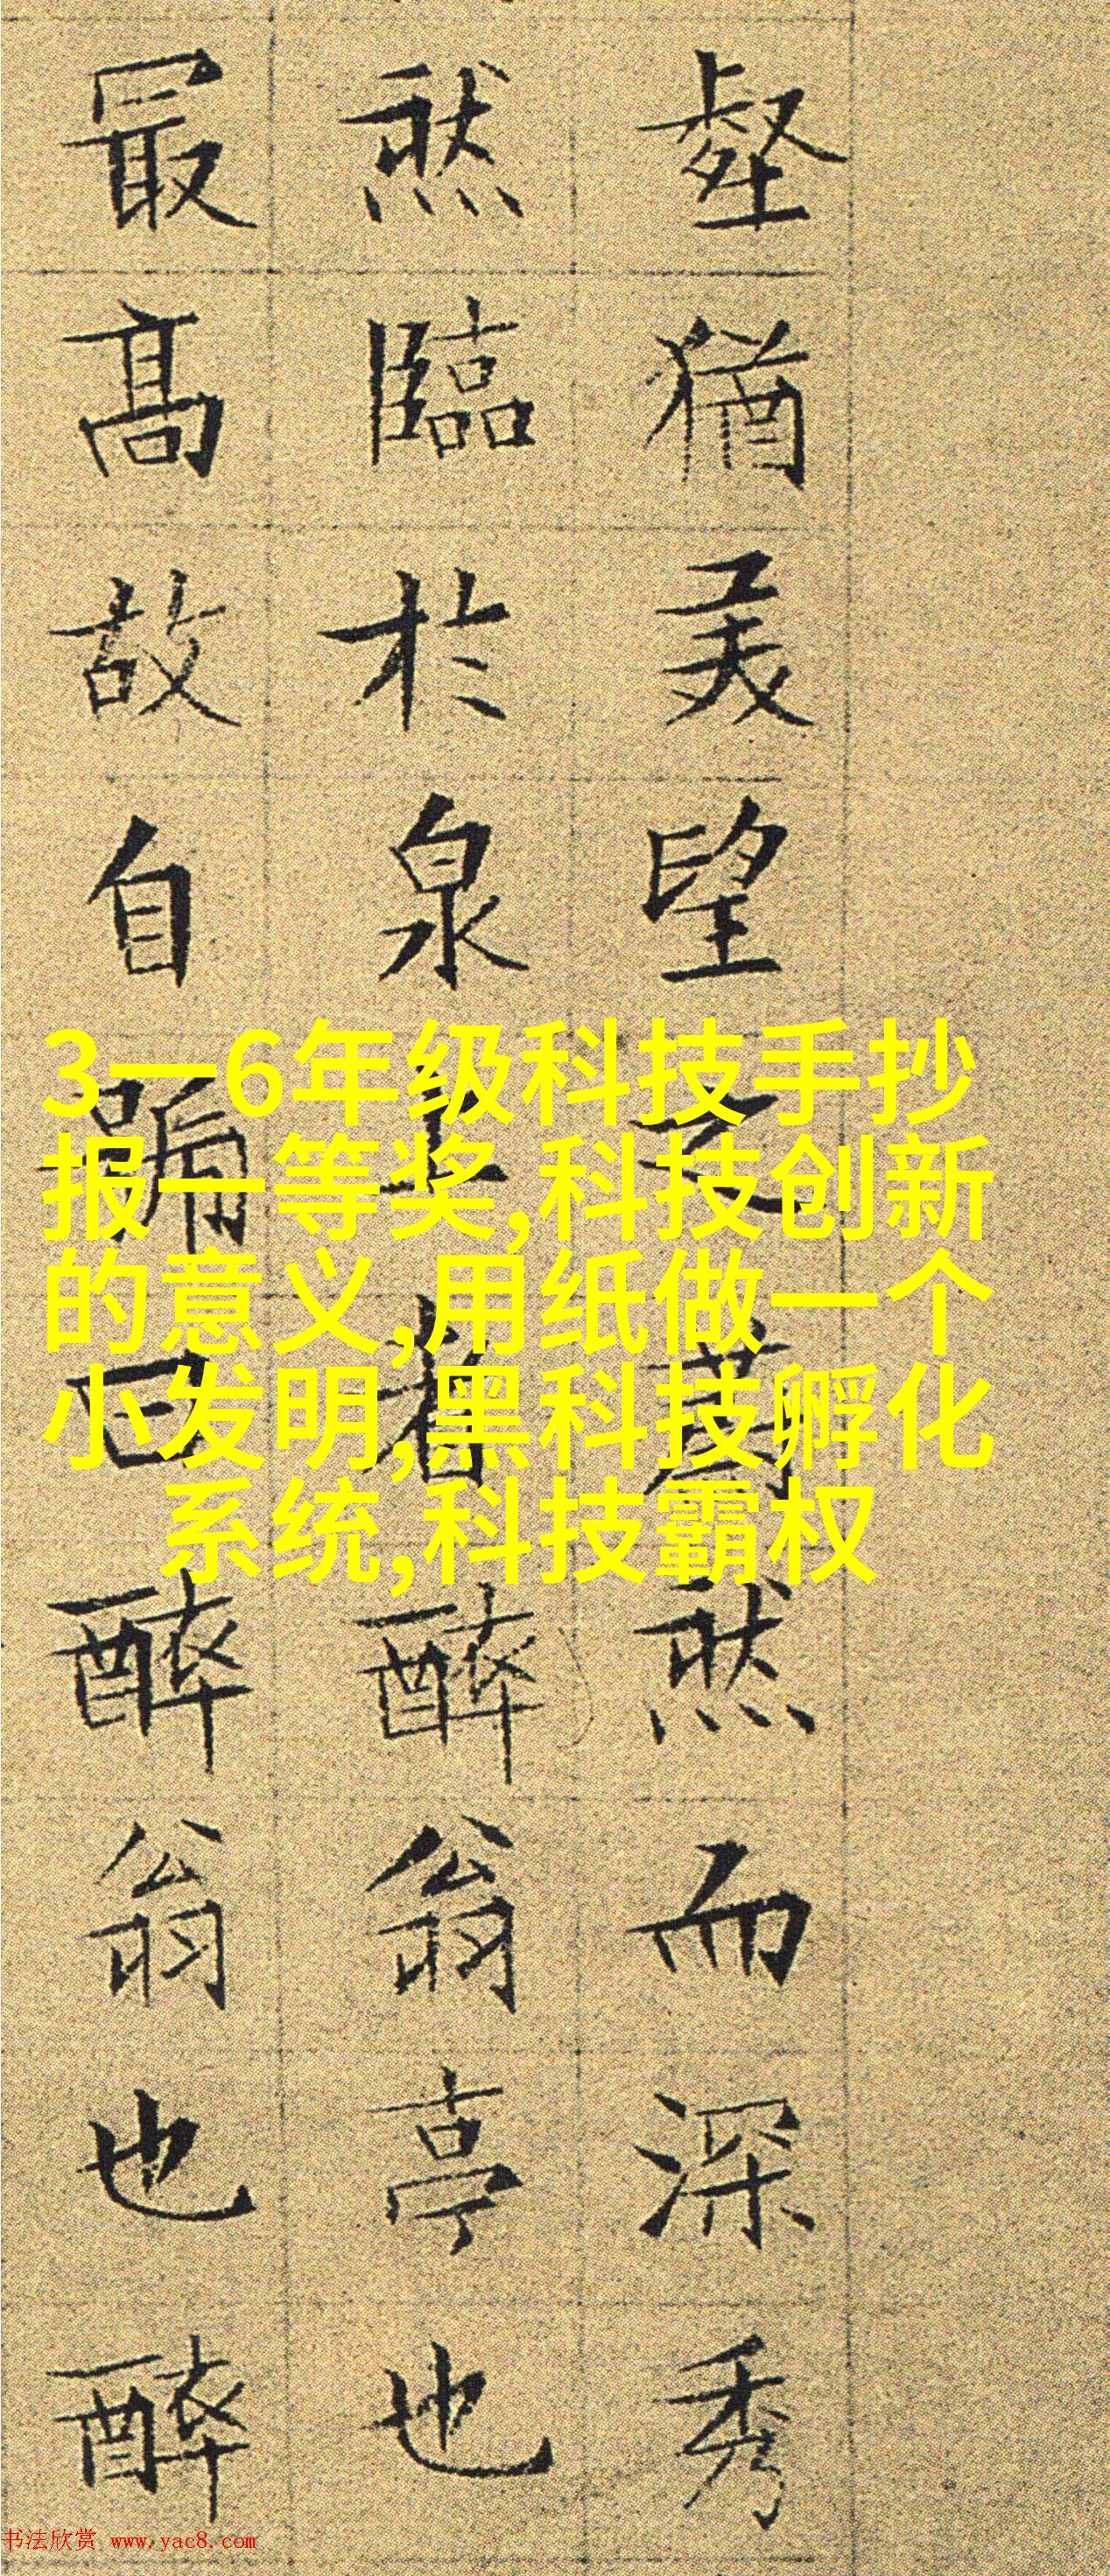 壑猶美望之蔚然而深秀
然臨於泉上者醉翁亭也
最高故自號曰醉翁也醉
3一6年级科技手抄
报一等奖,科技创新
的意义,用纸做一个
小发明,黑科技孵化
系统,科技霸权
书法欣赏 www.yac8.com